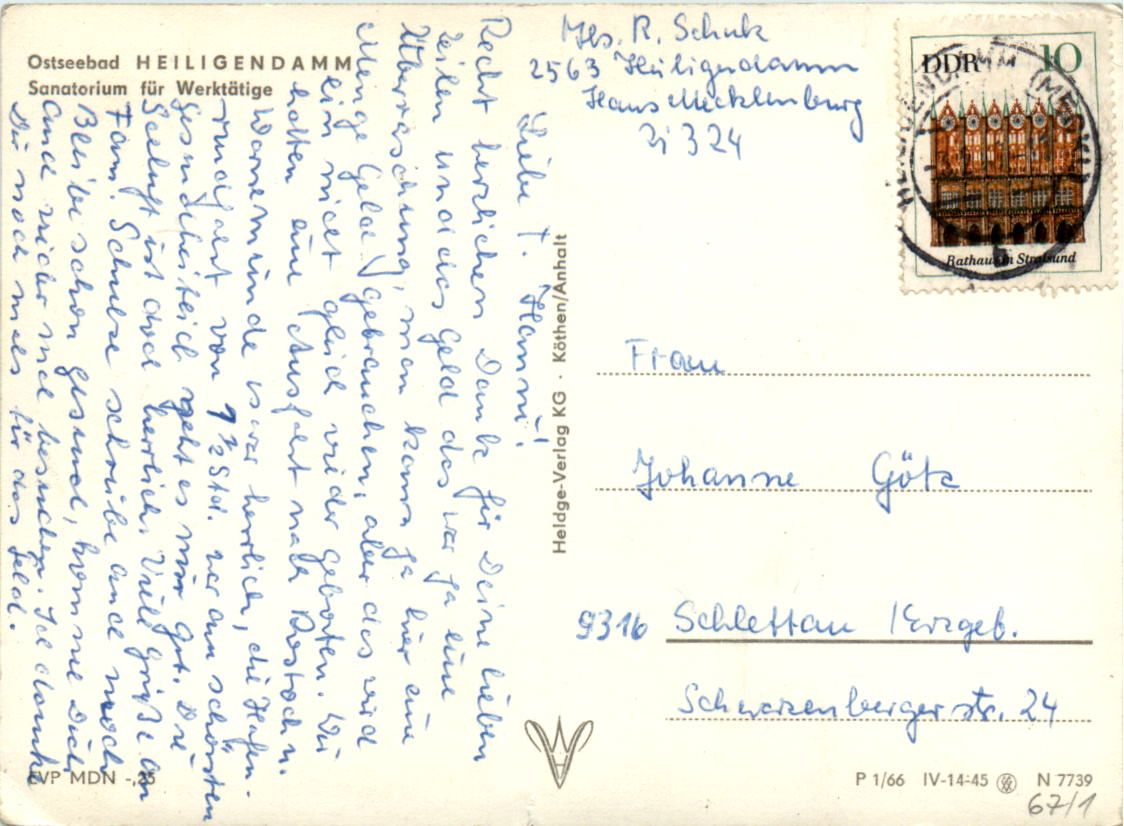 Ostseebad HEILIGENDAMM
Sanatorium für Werktätige
Liebe T. Hanni!
Recht herzlichen Dank für Deine lieben
Zeilen und das Geld das war ja eine
Überraschung, man kann ja hier eine
Menge Geld gebrauchen, aber das wird
ein nicht gleich wieder geboten. Wir
hatten eine Ausfahrt nach Rostock u.
Warnemünde es war herrlich, die Hafen-
rundfahrt von 1½ Std. war am schönsten
Gesundheitlich geht es mir gut. Die
Seeluft ist doch herrlich. Viele Grüße an
Fam. Schreibe auch noch
Bleibe schön gesund, komme Dich
auch wieder mal besuchen. Ich danke
Dir noch mals für das Geld.
EVP MDN -,25
Heldge-Verlag KG · Köthen/Anhalt
Abs. R. Schulz
2563 Heiligendamm
Haus Mecklenburg
Zi 324
DDR 10
Rathaus in Stralsund
Frau
Johanne Götz
9316 Schlettau / Erzgeb.
Schwarzenbergerstr. 24
P 1/66 IV-14-45 N 7739
67/1